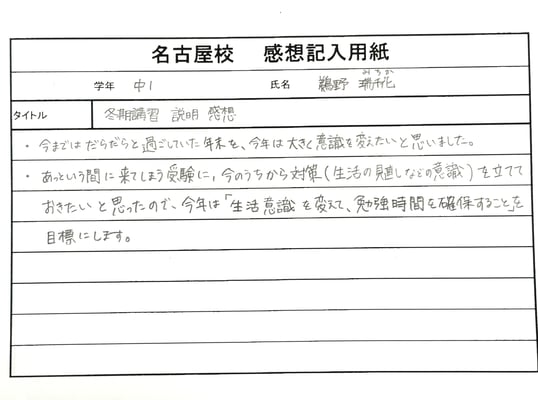 名古屋校 感想記入用紙
学年 中1 氏名 鵜野 瑞稀
みずか
タイトル 冬期講習 説明 感想
・今まではだらだらと過ごしていた年末を、今年は大きく意識を変えたいと思いました。
・あっという間に来てしまう受験に、今のうちから対策(生活の見直しなどの意識)を立てて
おきたいと思ったので、今年は「生活意識を変えて、勉強時間を確保すること」を
目標にします。